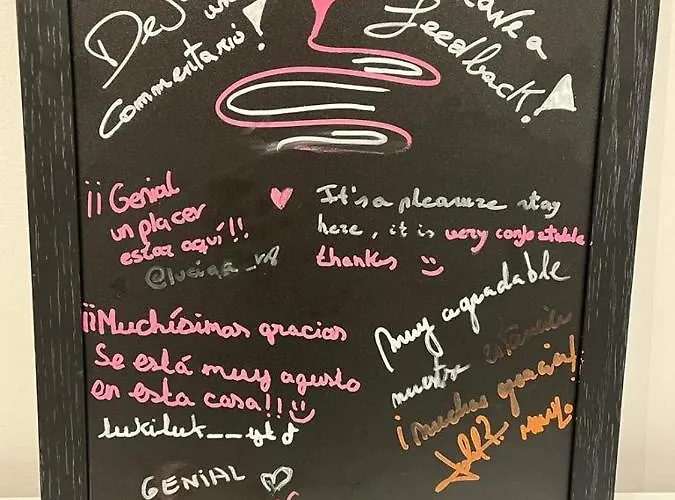 un
commentario!
Leave a
feedback!
¡¡Genial
un placer
estar aquí!!
It's a pleasure stay
here, it is very confortable,
thanks
¡¡Muchísimas gracias
Se está muy agusto
en esta casa!!
Muy agradable
nuestra estancia
¡muchas gracias!
GENIAL